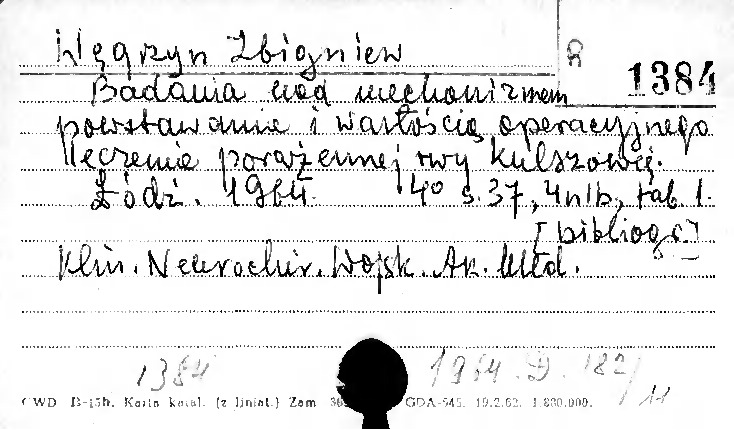 Węgrzyn Zbigniew
R 1384
Badania nad mechanizmem
powstawania i wartością operacyjnego
leczenia porażennej rwy kulszowej.
Łódź. 1964. 4° s. 37, 4nlb, tab. 1.
[bibliogr.]
Klin. Neurochir. Wojsk. Ak. Med.
1384 1964. D. 182/11
CWD B-15h. Karta katal. (z liniat.) Zam. GDA-545. 19.2.62. 1.800.000.